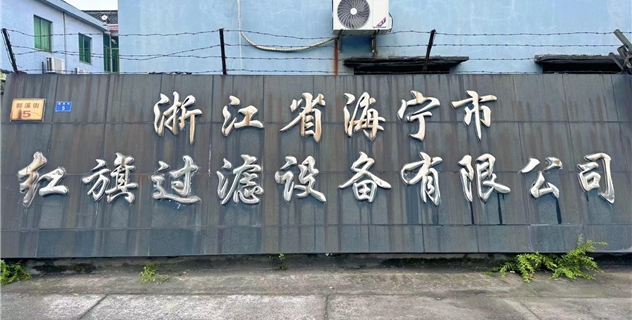 浙江省海宁市
红旗过滤设备有限公司
15